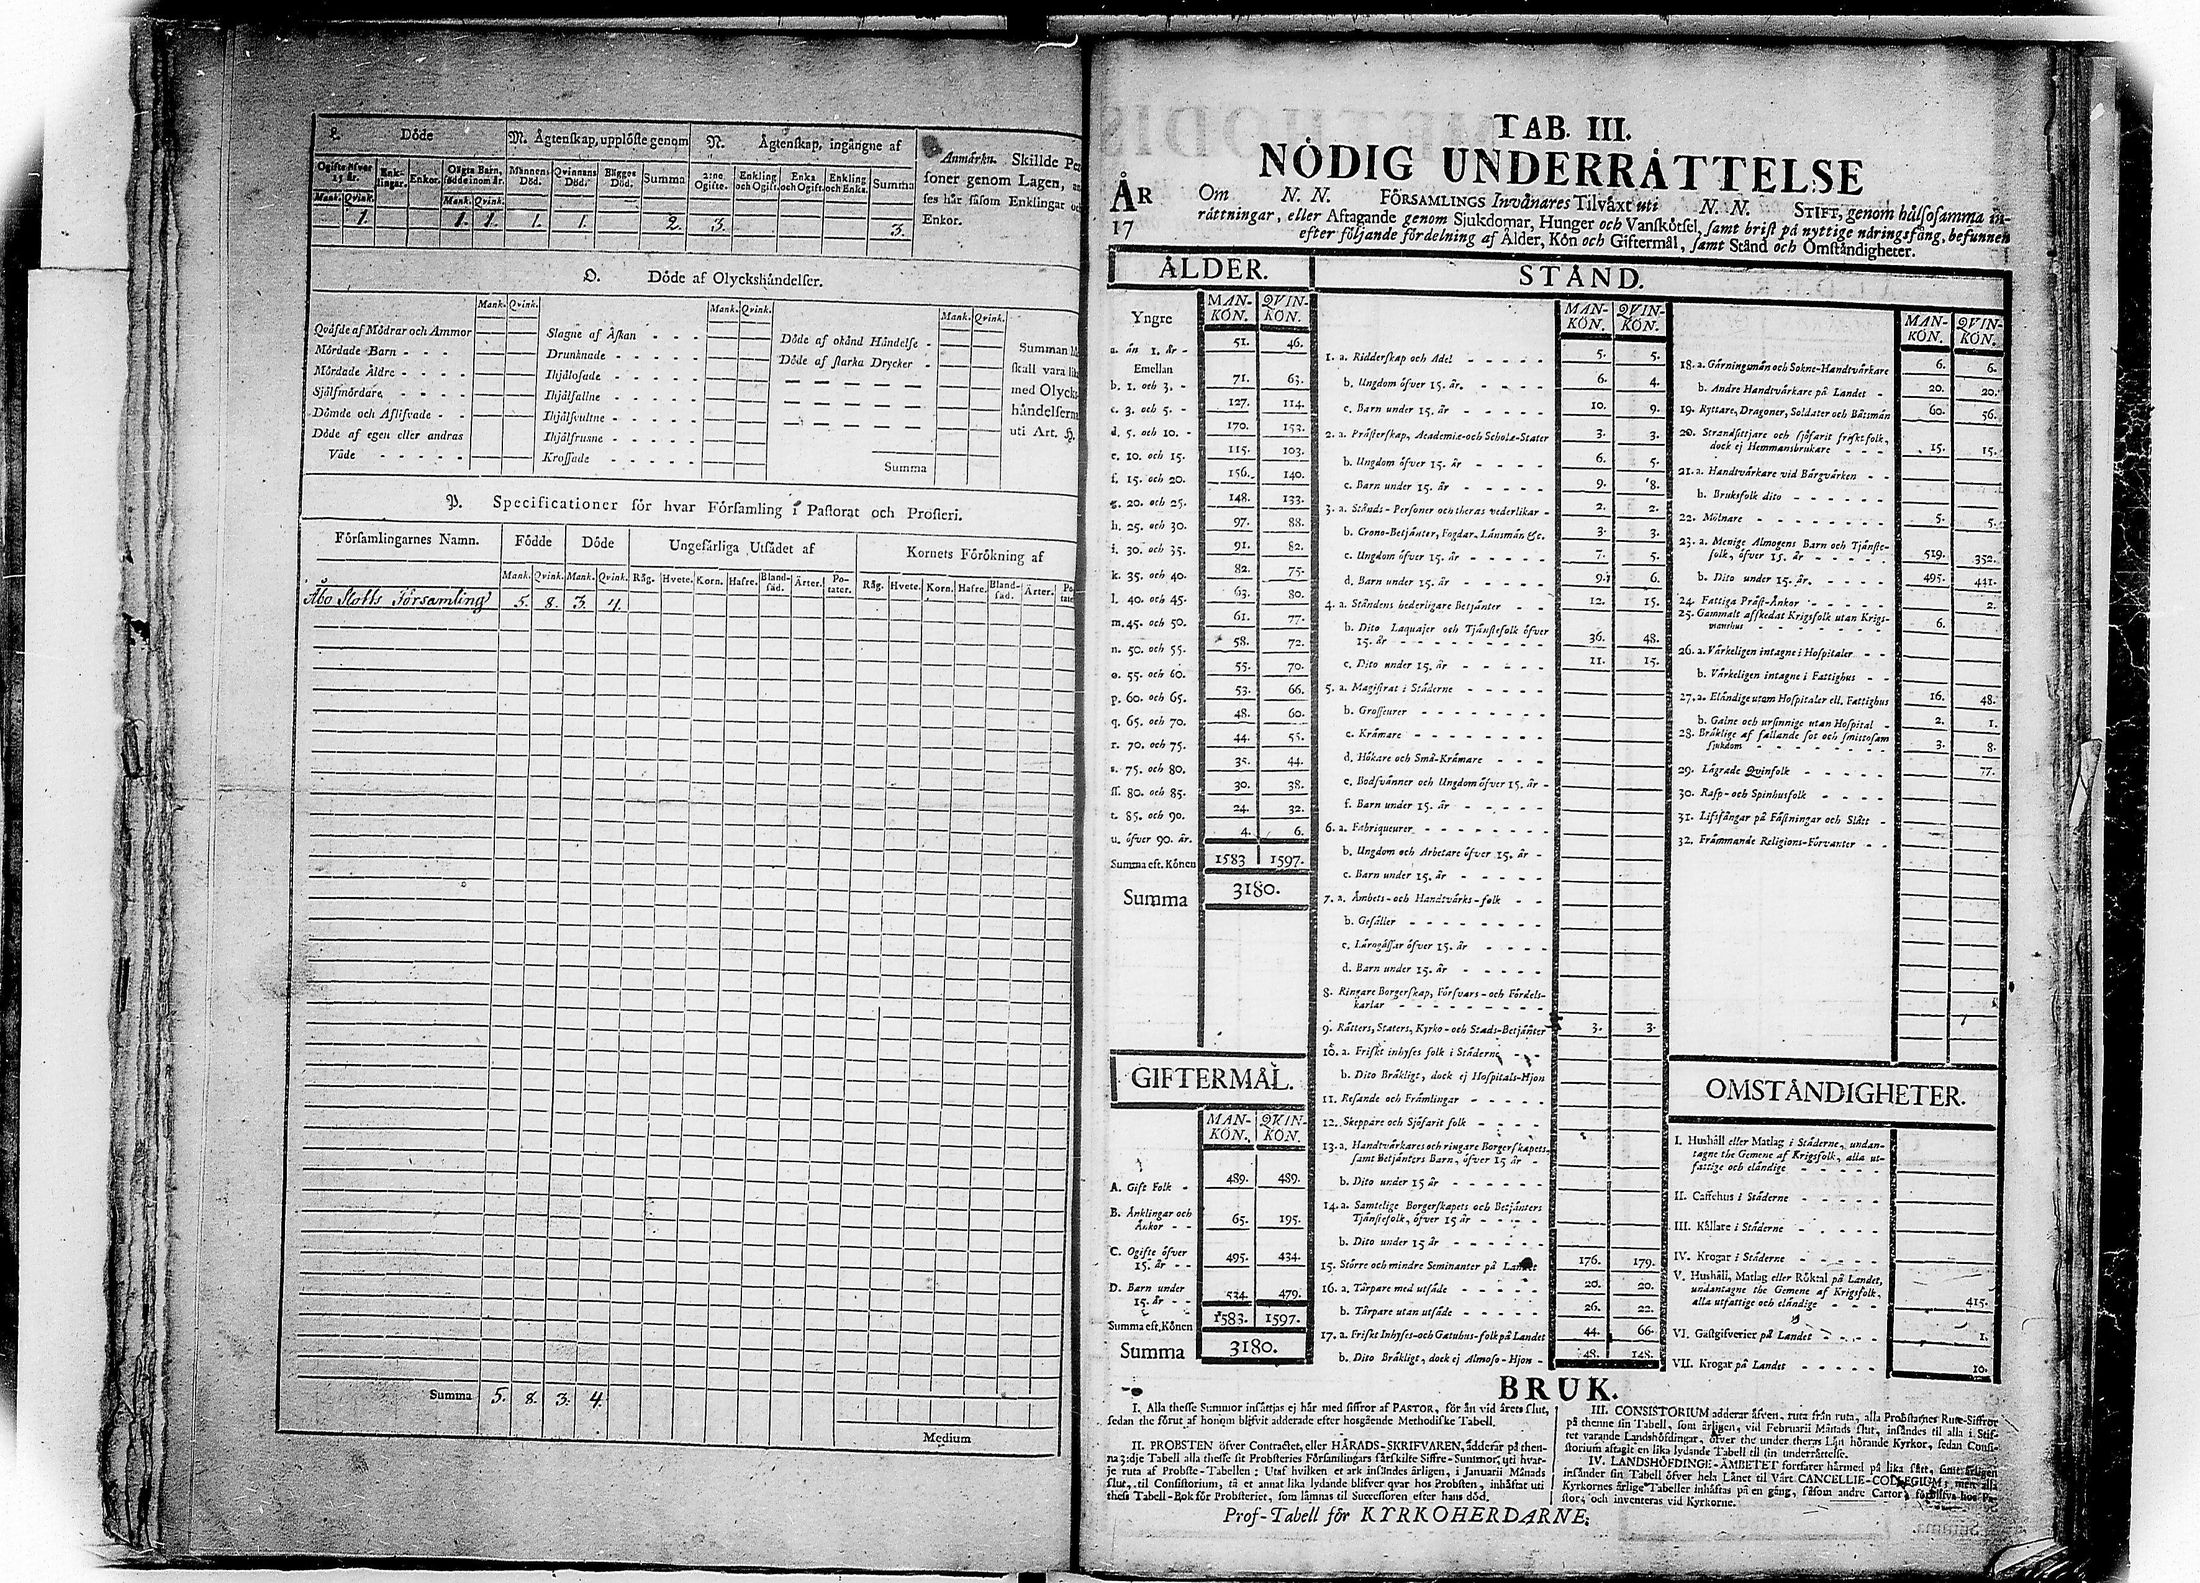 L. Döde
M. Ägtenskap, upplöste genom
N. Ägtenskap, ingångne af
Ogifte öfver 15 år. Enklingar. Enkor. Oägta Barn, födde inom år. Mannens Död. Qvinnans Död. Bägges Död. Summa 2:ne Ogifte. Enkling och Ogift. Enka och Ogift. Enkling och Enka. Summa
Mank. Qvink. Mank. Qvink.
1. 1. 1. 1. 1. 2. 3. 3.
Anmärkn. Skillde Per
soner genom Lagen, an
ses här såsom Enklingar oc
Enkor.
O. Döde af Olyckshändelser.
Mank. Qvink. Mank. Qvink. Mank. Qvink.
Qväfde af Mödrar och Ammor
Mördade Barn - - -
Mördade Äldre - - - -
Sjelfmördare - - - -
Dömde och Aflifvade - -
Döde af egen eller andras
Våde - - - - -
Slagne af Åskan - - -
Drunknade - - - - -
Ihjälosade - - - - -
Ihjälfallne - - - - -
Ihjälsvultne - - - - -
Ihjälfrusne - - - - -
Krossade - - - - -
Döde af okänd Händelse -
Döde af starka Drycker -
Summa
Summan hä
skall vara lik
med Olycks
händelserna
uti Art. H.
P. Specificationer för hvar Församling i Pastorat och Prosteri.
Församlingarnes Namn. Födde Döde Ungefärliga Utsädet af Kornets Förökning af
Mank. Qvink. Mank. Qvink. Råg. Hvete. Korn. Hafre. Bland-säd. Ärter. Po-tater. Råg. Hvete. Korn. Hafre. Bland-säd. Ärter. Po-tater.
Åbo Slotts Församling 5. 8. 3. 4.
Summa 5. 8. 3. 4.
Medium
TAB. III.
NÖDIG UNDERRÄTTELSE
ÅR
17
Om N. N. FÖRSAMLINGS Invånares Tilväxt uti N. N. STIFT, genom hälsosamma in-
rättningar, eller Aftagande genom Sjukdomar, Hunger och Vanskötsel, samt brist på nyttige näringsfång, befunnen
efter följande fördelning af Ålder, Kön och Giftermål, samt Stånd och Omständigheter.
ÅLDER.
MAN-KÖN. QVIN-KÖN.
Yngre
a. än 1. år - 51. 46.
Emellan
b. 1. och 3. - 71. 63.
c. 3. och 5. - 127. 114.
d. 5. och 10. - 170. 153.
e. 10. och 15. 115. 103.
f. 15. och 20. 156. 140.
g. 20. och 25. 148. 133.
h. 25. och 30. 97. 88.
i. 30. och 35. 91. 82.
k. 35. och 40. 82. 75.
l. 40. och 45. 63. 80.
m. 45. och 50. 61. 77.
n. 50. och 55. 58. 72.
o. 55. och 60. 55. 70.
p. 60. och 65. 53. 66.
q. 65. och 70. 48. 60.
r. 70. och 75. 44. 55.
s. 75. och 80. 35. 44.
ss. 80. och 85. 30. 38.
t. 85. och 90. 24. 32.
u. öfver 90. år. 4. 6.
Summa eft. Könen 1583 1597.
Summa 3180.
GIFTERMÅL.
MAN-KÖN. QVIN-KÖN.
A. Gift Folk - 489. 489.
B. Änklingar och
Änkor - - 65. 195.
C. Ogifte öfver
15. år - - 495. 434.
D. Barn under
15. år - - 534. 479.
Summa eft. Könen 1583. 1597.
Summa 3180.
STÅND.
MAN-KÖN. QVIN-KÖN.
1. a. Ridderskap och Adel - - - - - 5. 5.
b. Ungdom öfver 15. år. - - - - 6. 4.
c. Barn under 15. år - - - - - 10. 9.
2. a. Prästerskap, Academiæ-och Scholæ-Stater 3. 3.
b. Ungdom öfver 15. år - - - - 6. 5.
c. Barn under 15. år - - - - - 9. 8.
3. a. Stånds-Personer och theras vederlikar - 2. 2.
b. Crono-Betjänter, Fogdar, Länsmän &c. 3. 3.
c. Ungdom öfver 15. år - - - - 7. 5.
d. Barn under 15. år - - - - - 9. 6.
4. a. Ståndens hederligare Betjänter - - 12. 15.
b. Dito Laquajer och Tjänstefolk öfver
15. år - - - - - - - - 36. 48.
c. Dito under 15. år - - - - - 11. 15.
5. a. Magistrat i Städerne - - - - -
b. Grosseurer - - - - - - -
c. Krämare - - - - - - -
d. Hökare och Små-Krämare - - - -
e. Bodsvänner och Ungdom öfver 15. år -
f. Barn under 15. år - - - - -
6. a. Fabriqueurer - - - - - - -
b. Ungdom och Arbetare öfver 15. år -
c. Barn under 15. år - - - - -
7. a. Ämbets-och Handtvärks-folk - -
b. Gesäller - - - - - - -
c. Lärogåssar öfver 15. år - - - -
d. Barn under 15. år - - - - -
8. Ringare Borgerskap, Försvars-och Fördels-
karlar - - - - - - - -
9. Rätters, Staters, Kyrko-och Stads-Betjänter 3. 3.
10. a. Friskt inhyses folk i Städerne - -
b. Dito Bräkligt, dock ej Hospitals-Hjon
11. Resande och Främlingar - - - -
12. Skeppare och Sjöfarit folk - - - -
13. a. Handtvärkares och ringare Borgerskapets,
samt Betjänters Barn, öfver 15 år -
b. Dito under 15 år - - - - -
14. a. Samtelige Borgerskapets och Betjänters
Tjänstefolk, öfver 15 år - - - -
b. Dito under 15 år - - - - -
15. Större och mindre Seminanter på Landet 176. 179.
16. a. Tårpare med utsäde - - - - - 20. 20.
b. Tårpare utan utsäde - - - - 26. 22.
17. a. Friskt Inhyses-och Gatuhus-folk på Landet 44. 66.
b. Dito Bräkligt, dock ej Almoso-Hjon - 48. 148.
MAN-KÖN. QVIN-KÖN.
18. a. Gärningsmän och Sokne-Handtvärkare 6. 6.
b. Andre Handtvärkare på Landet - 20. 20.
19. Ryttare, Dragoner, Soldater och Båtsmän 60. 56.
20. Strandsittjare och sjöfarit friskt folk,
dock ej Hemmansbrukare - - - 15. 15.
21. a. Handtvärkare vid Bärgvärken - -
b. Bruksfolk dito - - - - - -
22. Mölnare - - - - - - - 5. 5.
23. a. Menige Almogens Barn och Tjänste-
folk, öfver 15. år - - - - - 519. 352.
b. Dito under 15. år. - - - - - 495. 441.
24. Fattiga Präst-Änkor - - - - - 2.
25. Gammalt afskedat Krigsfolk utan Krigs-
manshus - - - - - - - 6.
26. a. Värkeligen intagne i Hospitaler - -
b. Värkeligen intagne i Fattighus - -
27. a. Eländige utom Hospitaler ell. Fattighus 16. 48.
b. Galne och ursinnige utan Hospital - 2. 1.
28. Bräklige af fallande sot och smittosam
sjukdom - - - - - - - 3. 8.
29. Lägrade Qvinfolk - - - - - 77.
30. Rasp-och Spinhusfolk - - - -
31. Lifsfångar på Fästningar och Slått -
32. Främmande Religions-Förvanter - -
OMSTÄNDIGHETER.
I. Hushåll eller Matlag i Städerne, undan-
tagne the Gemene af Krigsfolk, alla ut-
fattige och eländige - - - - -
II. Caffehus i Städerne - - - - -
III. Källare i Städerne - - - - -
IV. Krogar i Städerne - - - - -
V. Hushåll, Matlag eller Röktal på Landet,
undantagne the Gemene af Krigsfolk,
alla utfattige och eländige - - - 415.
VI. Gästgifverier på Landet - - - - 1.
VII. Krogar på Landet - - - - - 10.
BRUK.
I. Alla thesse Summor insättjas ej här med siffror af PASTOR, för än vid årets slut,
sedan the förut af honom blifvit adderade efter hosgående Methodiske Tabell.
II. PROBSTEN öfver Contractet, eller HÄRADS-SKRIFVAREN, adderar på then-
na 3:dje Tabell alla thesse sit Probsteries Församlingars särskilte Siffre-Summor, uti hvar-
je ruta af Probste-Tabellen: Utaf hvilken et ark insändes årligen, i Januarii Månads
slut, til Consistorium, tå et annat lika lydande blifver qvar hos Probsten, inhäftat uti
thess Tabell-Bok för Probsteriet, som lämnas til Successoren efter hans död.
III. CONSISTORIUM adderar äfven, ruta från ruta, alla Probstarnes Rute-Siffror
på thenne sin Tabell, som årligen, vid Februarii Månads slut, insändes til alla i Stif-
tet varande Landshöfdingar, öfver the under theras Län hörande Kyrkor, sedan Consi-
storium aftagit en lika lydande Tabell til sin underrättelse.
IV. LANDSHÖFDINGE-ÄMBETET fortfarer härmed på lika sätt, samt årligen
insänder sin Tabell öfver hela Länet til Vårt CANCELLIE-COLLEGIUM; men alla
Kyrkornes årlige Tabeller inhäftas på en gång, såsom andre Cartor, förblifva hos Pa-
stor, och inventeras vid Kyrkorne.
Prof-Tabell för KYRKOHERDARNE.